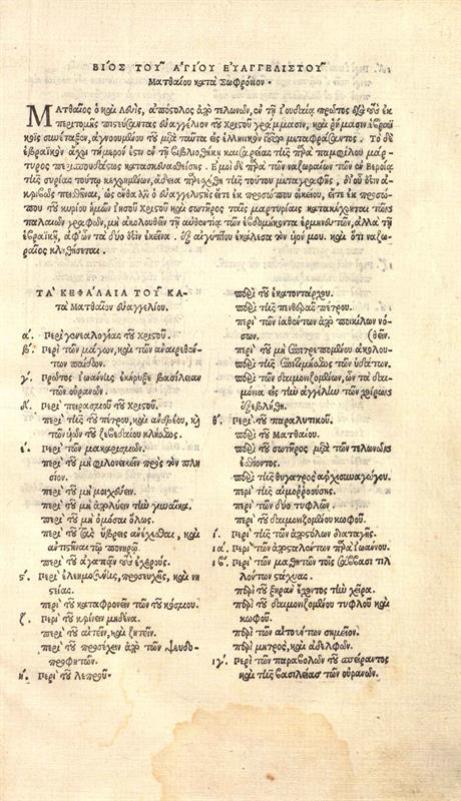 ΒΙΟΣ ΤΟΥ ΑΓΙΟΥ ΕΥΑΓΓΕΛΙΣΤΟΥ
Ματθαίου κατὰ Σωφρόνιον.
ΜΑτθαῖος ὁ καὶ Λευὶς, ἀπόστολος ἀπὸ τελωνῶν, ἐν τῇ Ἰουδαίᾳ πρῶτος διὰ τοὺς ἐκ
περιτομῆς πιστεύσαντας εὐαγγέλιον τοῦ χριστοῦ γράμμασιν, καὶ ῥήμασιν ἑβραϊ
κοῖς συνέταξεν, ἀγνοουμένου τοῦ μετὰ ταῦτα εἰς ἑλληνικὸν μεταφράσαντος. Τὸ δὲ
ἑβραϊκὸν ἄχρι σήμερόν ἐστι ἐν τῇ βιβλιοθήκῃ καισαρείας τῆς παμφίλου μάρ
τυρος κατασκευασθείσῃ. Ἐμοὶ δὲ παρὰ τῶν ναζωραίων τῶν ἐν Βεροίᾳ
τῆς συρίας τούτῳ κεχρημένων, ἄδεια τῆς τούτου μεταγραφῆς, δι' οὗ ἔστιν ἀ
κριβῶς πεισθῆναι, ὡς ἔνθα ἂν ὁ εὐαγγελιστὴς εἴτε ἐκ προσώπου οἰκείου, εἴτε ἐκ προσώ
που τοῦ κυρίου ἡμῶν ἰησοῦ χριστοῦ καὶ σωτῆρος ταῖς μαρτυρίαις κατακέχρηται τῶν
παλαιῶν γραφῶν, μὴ ἀκολουθεῖν τῇ αὐθεντίᾳ τῶν ἑβδομήκοντα ἑρμηνευτῶν, ἀλλὰ τῇ
ἑβραϊκῇ, ἀφ' ὧν τὰ δύο ἐστὶν ἐκεῖνα. ἐξ αἰγύπτου ἐκάλεσα τὸν υἱόν μου. καὶ ὅτι ναζω
ραῖος κληθήσεται.
ΤΑ ΚΕΦΑΛΑΙΑ ΤΟΥ ΚΑ-
τὰ Ματθαῖον εὐαγγελίου.
α'. Περὶ γενεαλογίας τοῦ χριστοῦ.
β'. Περὶ τῶν μάγων, καὶ τῶν ἀναιρεθέν
των παίδων.
γ'. Πρῶτος ἰωάννης ἐκήρυξε βασιλείαν
τῶν οὐρανῶν.
δ'. Περὶ πειρασμοῦ τοῦ χριστοῦ.
περὶ τῆς τοῦ πέτρου, καὶ ἀνδρέου, καὶ
τῶν υἱῶν τοῦ ζεβεδαίου κλήσεως.
ε'. Περὶ τῶν μακαρισμῶν.
περὶ τοῦ μὴ πρὸς τὸν πλη
σίον.
περὶ τοῦ μὴ μοιχεύειν.
περὶ τοῦ μὴ ἀπολύειν τὴν γυναῖκα.
περὶ τοῦ μὴ ὀμόσαι ὅλως.
περὶ τοῦ τὰς ὕβρεις ἀνέχεσθαι, καὶ
ἀντιστῆναι τῷ πονηρῷ.
περὶ τοῦ ἀγαπᾶν τοὺς ἐχθρούς.
ϛ'. Περὶ ἐλεημοσύνης, προσευχῆς, καὶ νη
στείας.
περὶ τοῦ καταφρονεῖν τῶν τοῦ κόσμου.
ζ'. Περὶ τοῦ κρίνειν μηδένα.
περὶ τοῦ αἰτεῖν, καὶ ζητεῖν.
περὶ τοῦ προσέχειν ἀπὸ τῶν ψευδο-
προφητῶν.
η'. Περὶ τοῦ λεπροῦ.
περὶ τοῦ ἑκατοντάρχου.
περὶ τῆς πενθερᾶς πέτρου.
περὶ τῶν ἰαθέντων ἀπὸ ποικίλων νό-
σων. (θεῖν.
περὶ τοῦ μὴ ἐπιτρεπομένου ἀκολου-
περὶ τῆς ἐπιτιμήσεως τῶν ὑδάτων.
περὶ τῶν δαιμονιζομένων, ὧν τὰ δαι-
μόνια εἰς τὴν ἀγέλην τῶν χοίρων
ἐξεβλήθη.
θ'. Περὶ τοῦ παραλυτικοῦ.
περὶ τοῦ Ματθαίου.
περὶ τοῦ σωτῆρος μετὰ τῶν τελωνῶν
ἐσθίοντος.
περὶ τῆς θυγατρὸς ἀρχισυναγώγου.
περὶ τῆς αἱμορροούσης.
περὶ τῶν δύο τυφλῶν.
περὶ τοῦ δαιμονιζομένου κωφοῦ.
ι'. Περὶ τῆς τῶν ἀποστόλων διαταγῆς.
ια'. Περὶ τῶν ἀποσταλέντων παρὰ ἰωάννου.
ιβ'. Περὶ τῶν μαθητῶν τοῖς σάββασι τιλ
λόντων στάχυας.
περὶ τοῦ ξηρὰν ἔχοντος τὴν χεῖρα.
περὶ τοῦ δαιμονιζομένου τυφλοῦ καὶ
κωφοῦ.
περὶ τῶν αἰτούντων σημεῖον.
περὶ μητρὸς, καὶ ἀδελφῶν.
ιγ'. Περὶ τῶν παραβολῶν τοῦ σπείραντος
καὶ τῆς βασιλείας τῶν οὐρανῶν.